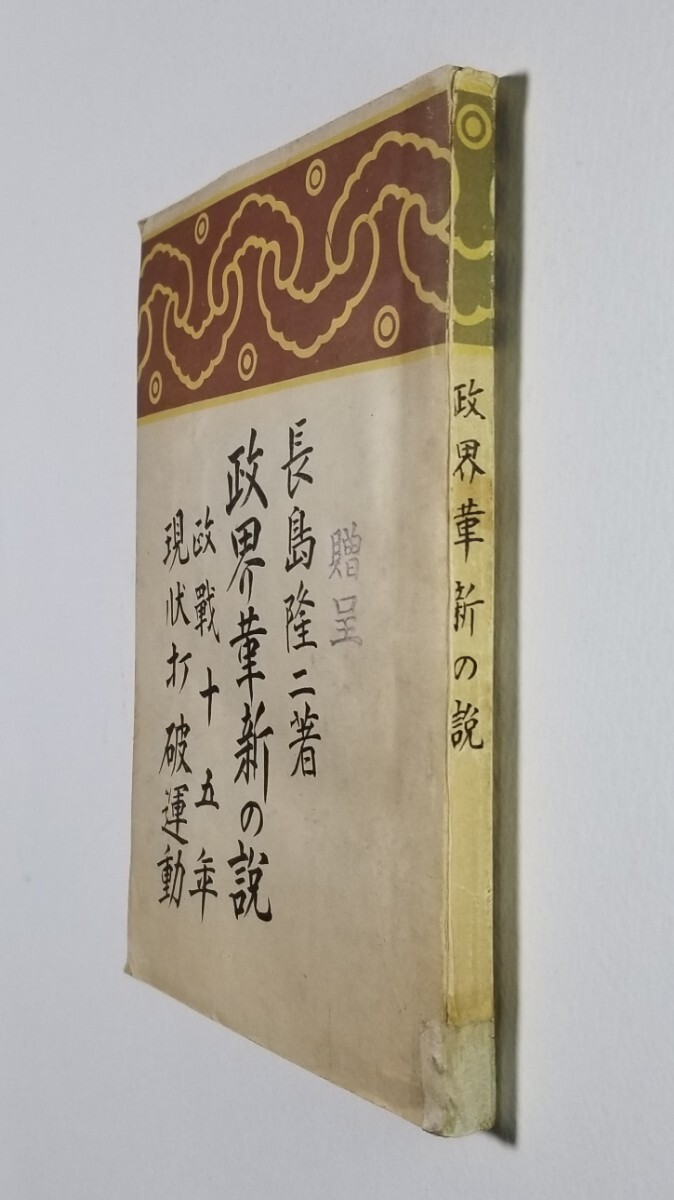 贈呈
長島隆二著
政界革新の說
政戰十五年
現狀打破運動
政界革新の說